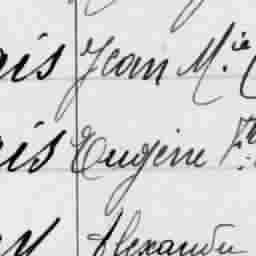 ais Jean M.ie
ais Eugène F.
y Alexandre